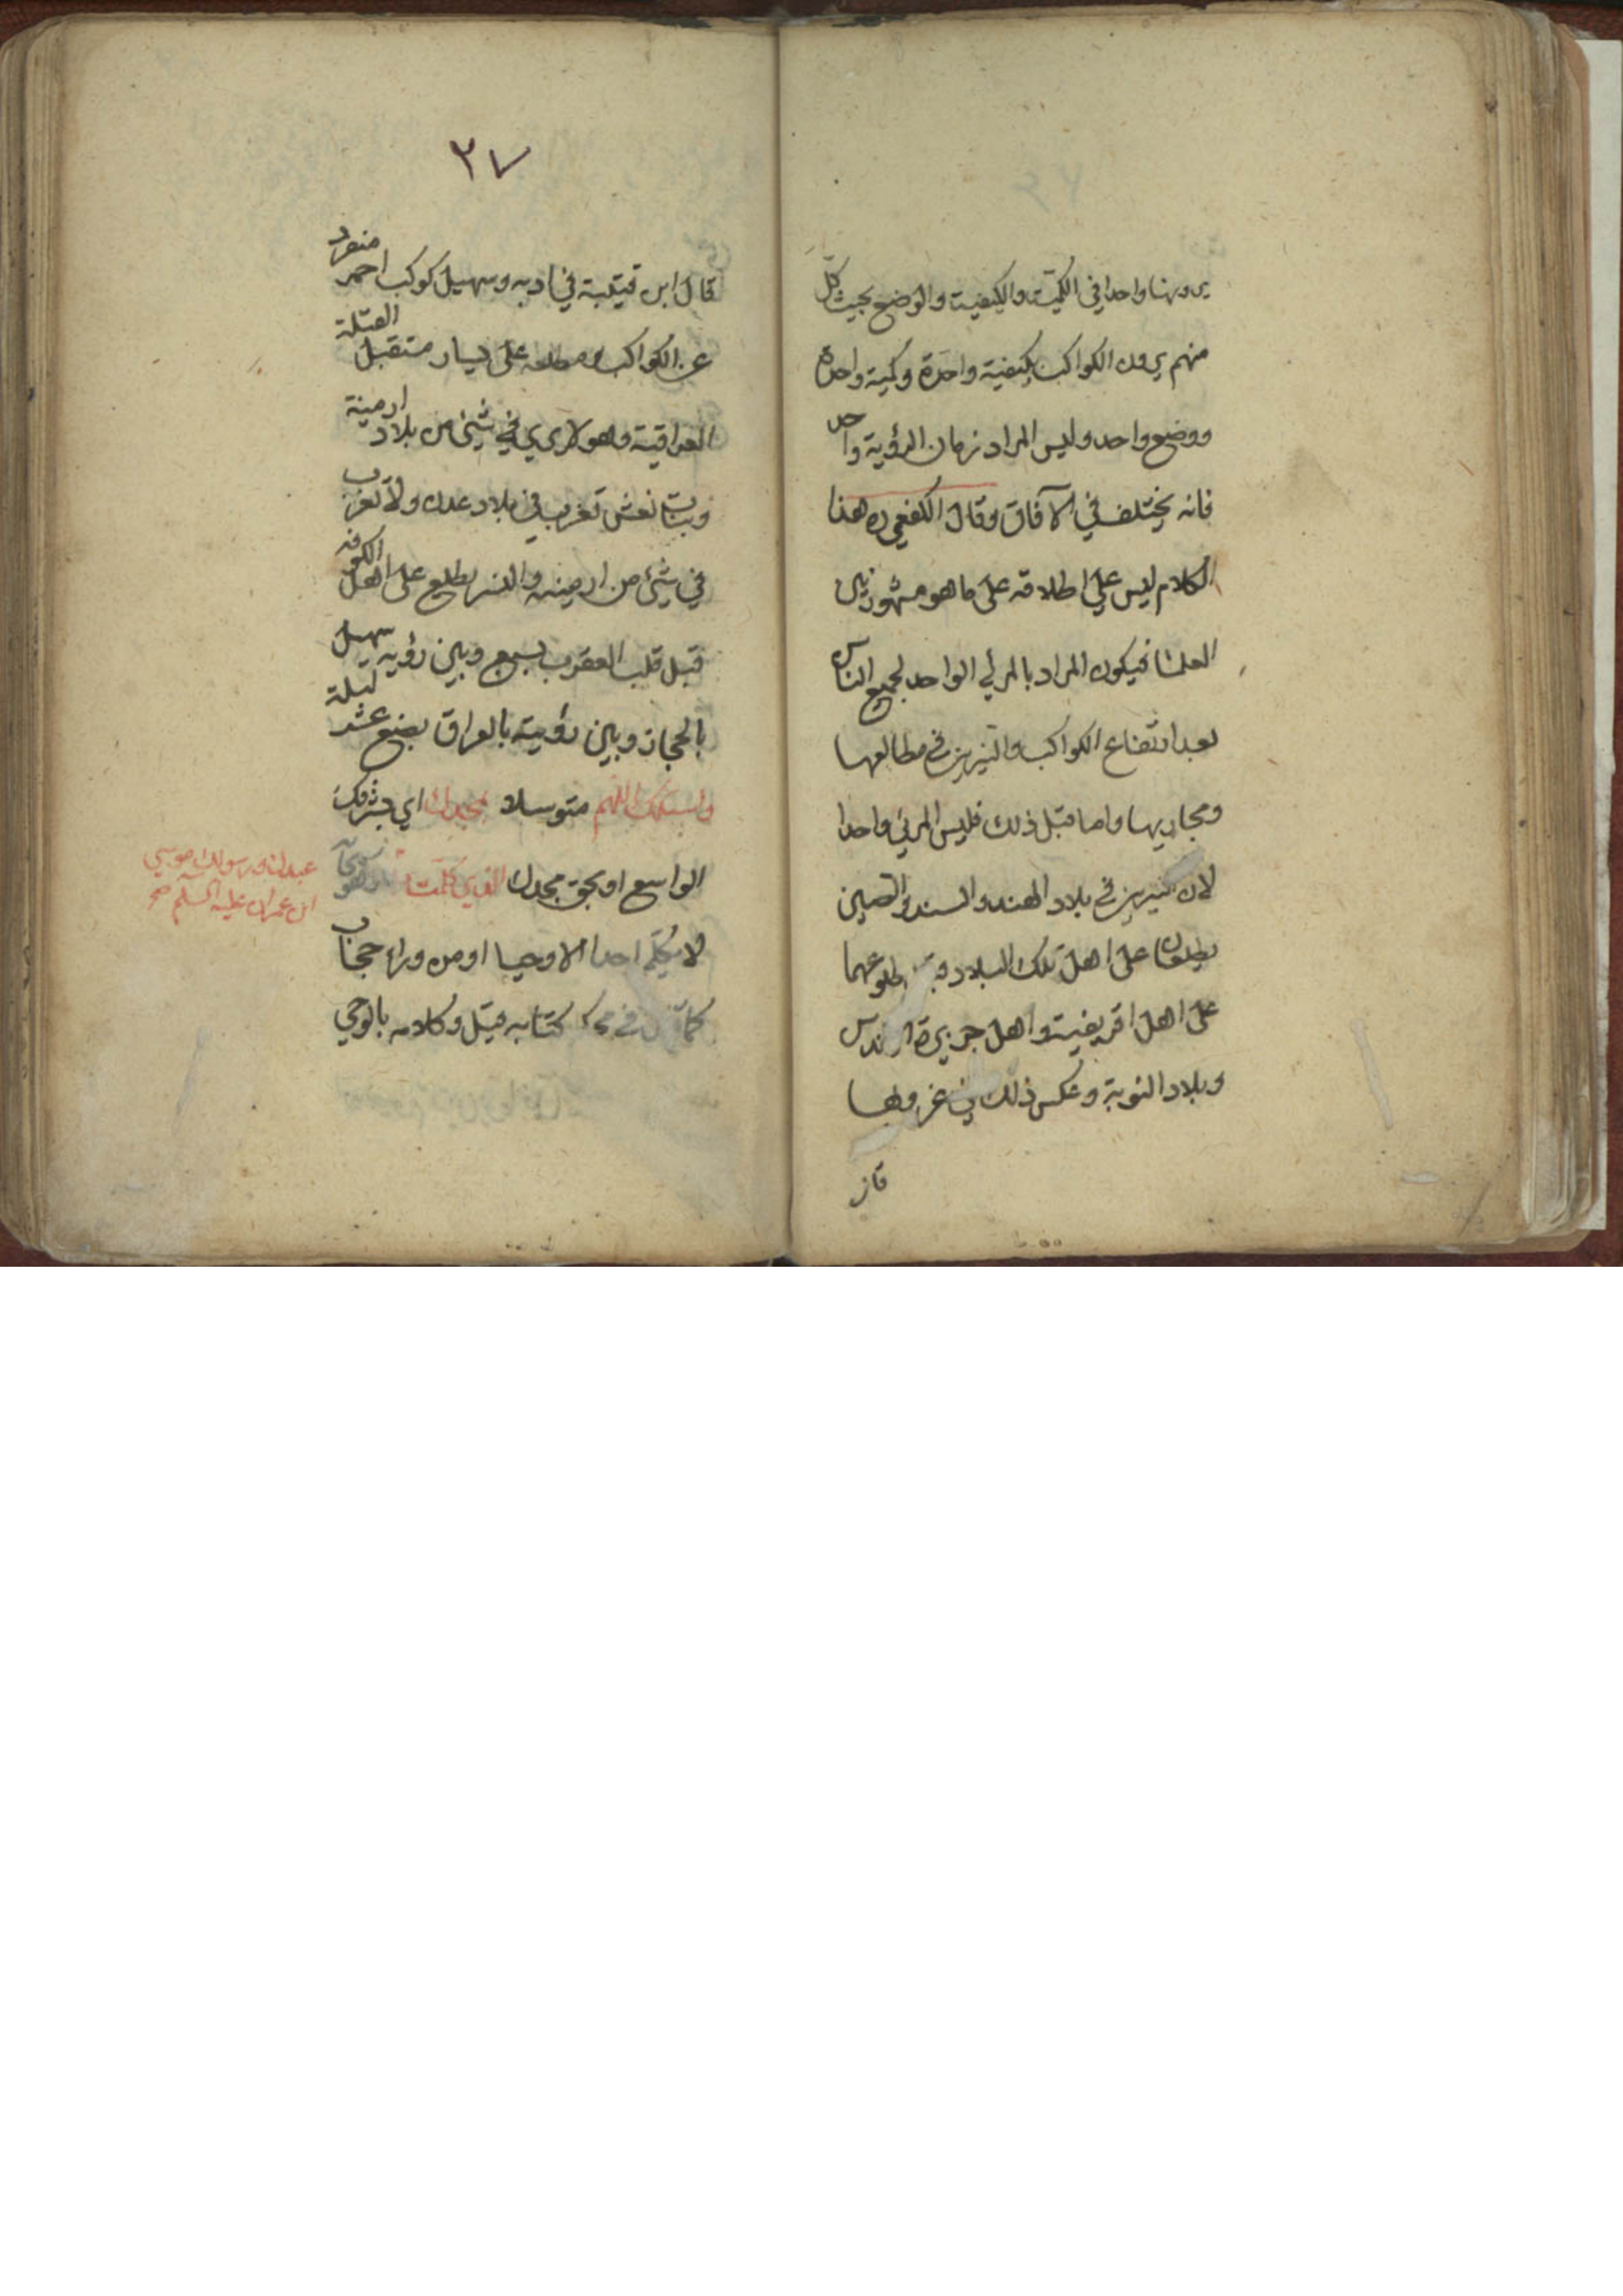 يرونها واحدا في الكمية والكيفية والوضع بحيث كل
منهم يرون الكواكب بكيفية واحدة وكمية واحدة
ووضع واحد وليس المراد زمان الرؤية واحد
فانه يختلف في الآفاق وقال الكفعمي ره هذا
الكلام ليس علي اطلاقه على ما هو مشهور بين
العلماء فيكون المراد بالمرئي الواحد لجميع الناس
بعد ارتفاع الكواكب والنيرين في مطالعها
ومجاريها واما قبل ذلك فليس المرئي واحدا
لان النيرين في بلاد الهند والسند والصين
يطلعان على اهل تلك البلاد قبل طلوعهما
على اهل افريقية واهل جزيرة اندلس
وبلاد النوبة وعكس ذلك في غروبها
قاز
٢٧
قال ابن قتيبة في ادبه وسهيل كوكب احمر منفرد
عن الكواكب ومطلعه على يسار مستقبل القبلة
العراقية وهو لا يري في شيئ من بلاد ارمينة
وبنات نعش تغرب في بلاد عدن ولا تغرب
في شيئ من ارمينيه والنسر يطلع على اهل الكوفه
قبل قلب العقرب بسبع وبين رؤيه سهيل
بالحجاز وبين رؤيته بالعراق بضع عشر ليلة
واسئلك اللهم متوسلا بمجدك اي بشرفك
الواسع او بحق مجدك الذي كلمت به وهو سبحانه
عبدك ورسولك موسي
ابن عمران عليه السلم صح
لا يكلم احدا الا وحيا او من وراء حجاب
كما في محكم كتابه قيل وكلامه بالوحي